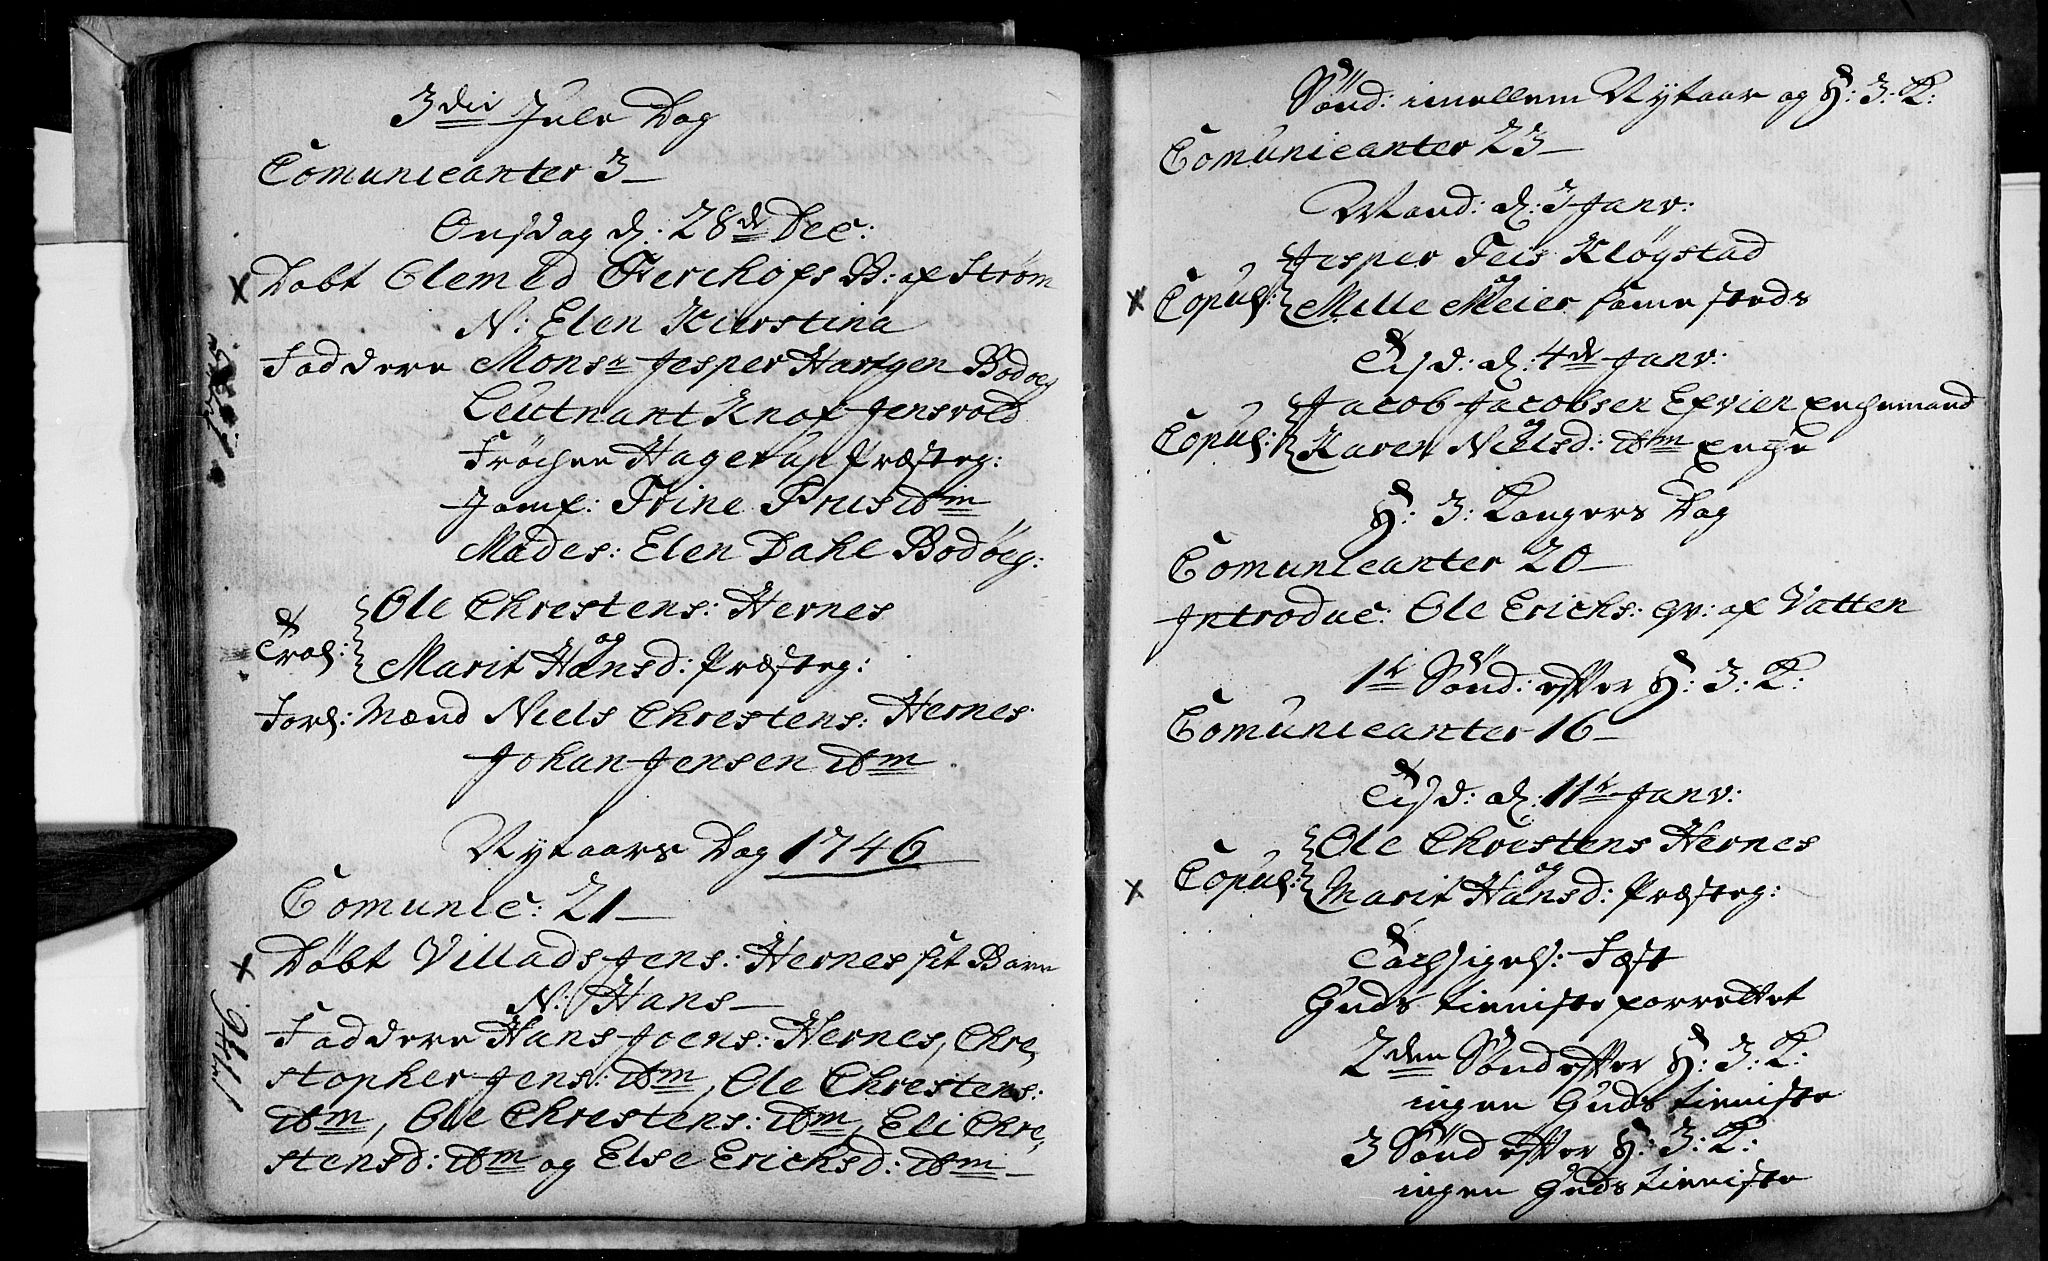 3die Jule Dag
Comunicanter 3
Onsdag d: 28de Dec:
Døbt Clemed Terchofs B: af Strøm
N: Elen Kierstina
Faddere Monsr Jesper Hartgen Bodøeg
Leutnant Knof Jensvold
Frøchen Hagerup Præsteg:
Jomf: Trine Friis ibm
Mades: Elen Dahl Bodøeg:
Trol: Ole Chrestens: Hernes
og
Marit Hansd: Præsteg:
Forl: Mænd Niels Chrestens: Hernes
Johan Jensen ibm
Nytaars Dag 1746
Comunic: 21
Døbt Villads Jens: Hernes sit Barn
N: Hans
Faddere Hans Joens: Hernes, Chre
stopher Jens: ibm, Ole Chrestens:
ibm, Ole Chrestens: ibm, Eli Chre,
stensd: ibm og Else Erichsd: ibm
Sønd: imellem Nytaar og H: 3: K:
Comunicanter 23
Mand: d: 3 Janv:
Jesper Feis Kløgstad
og
Copul: Mille Meier samesteds
Tisd: d: 4de Janv:
Jacob Jacobsen Enchemand
og
Copul: Karen Nielsd: ibm Enche
H: 3: Kongers Dag
Comunicanter 20
Introduc: Ole Erichs: qv: af Vatten
1te Sønd: efter H: 3: K:
Comunicanter 16
Tisd: d: 11te Janv:
Ole Chrestens Hernes
og
Copul: Marit Hansd: Præsteg:
Tachsigels: Fæst
Guds tienniste forrettet
2den Sønd efter H: 3: K:
ingen Guds tienniste
3 Sønd efter H: 3: K:
ingen Guds tienniste